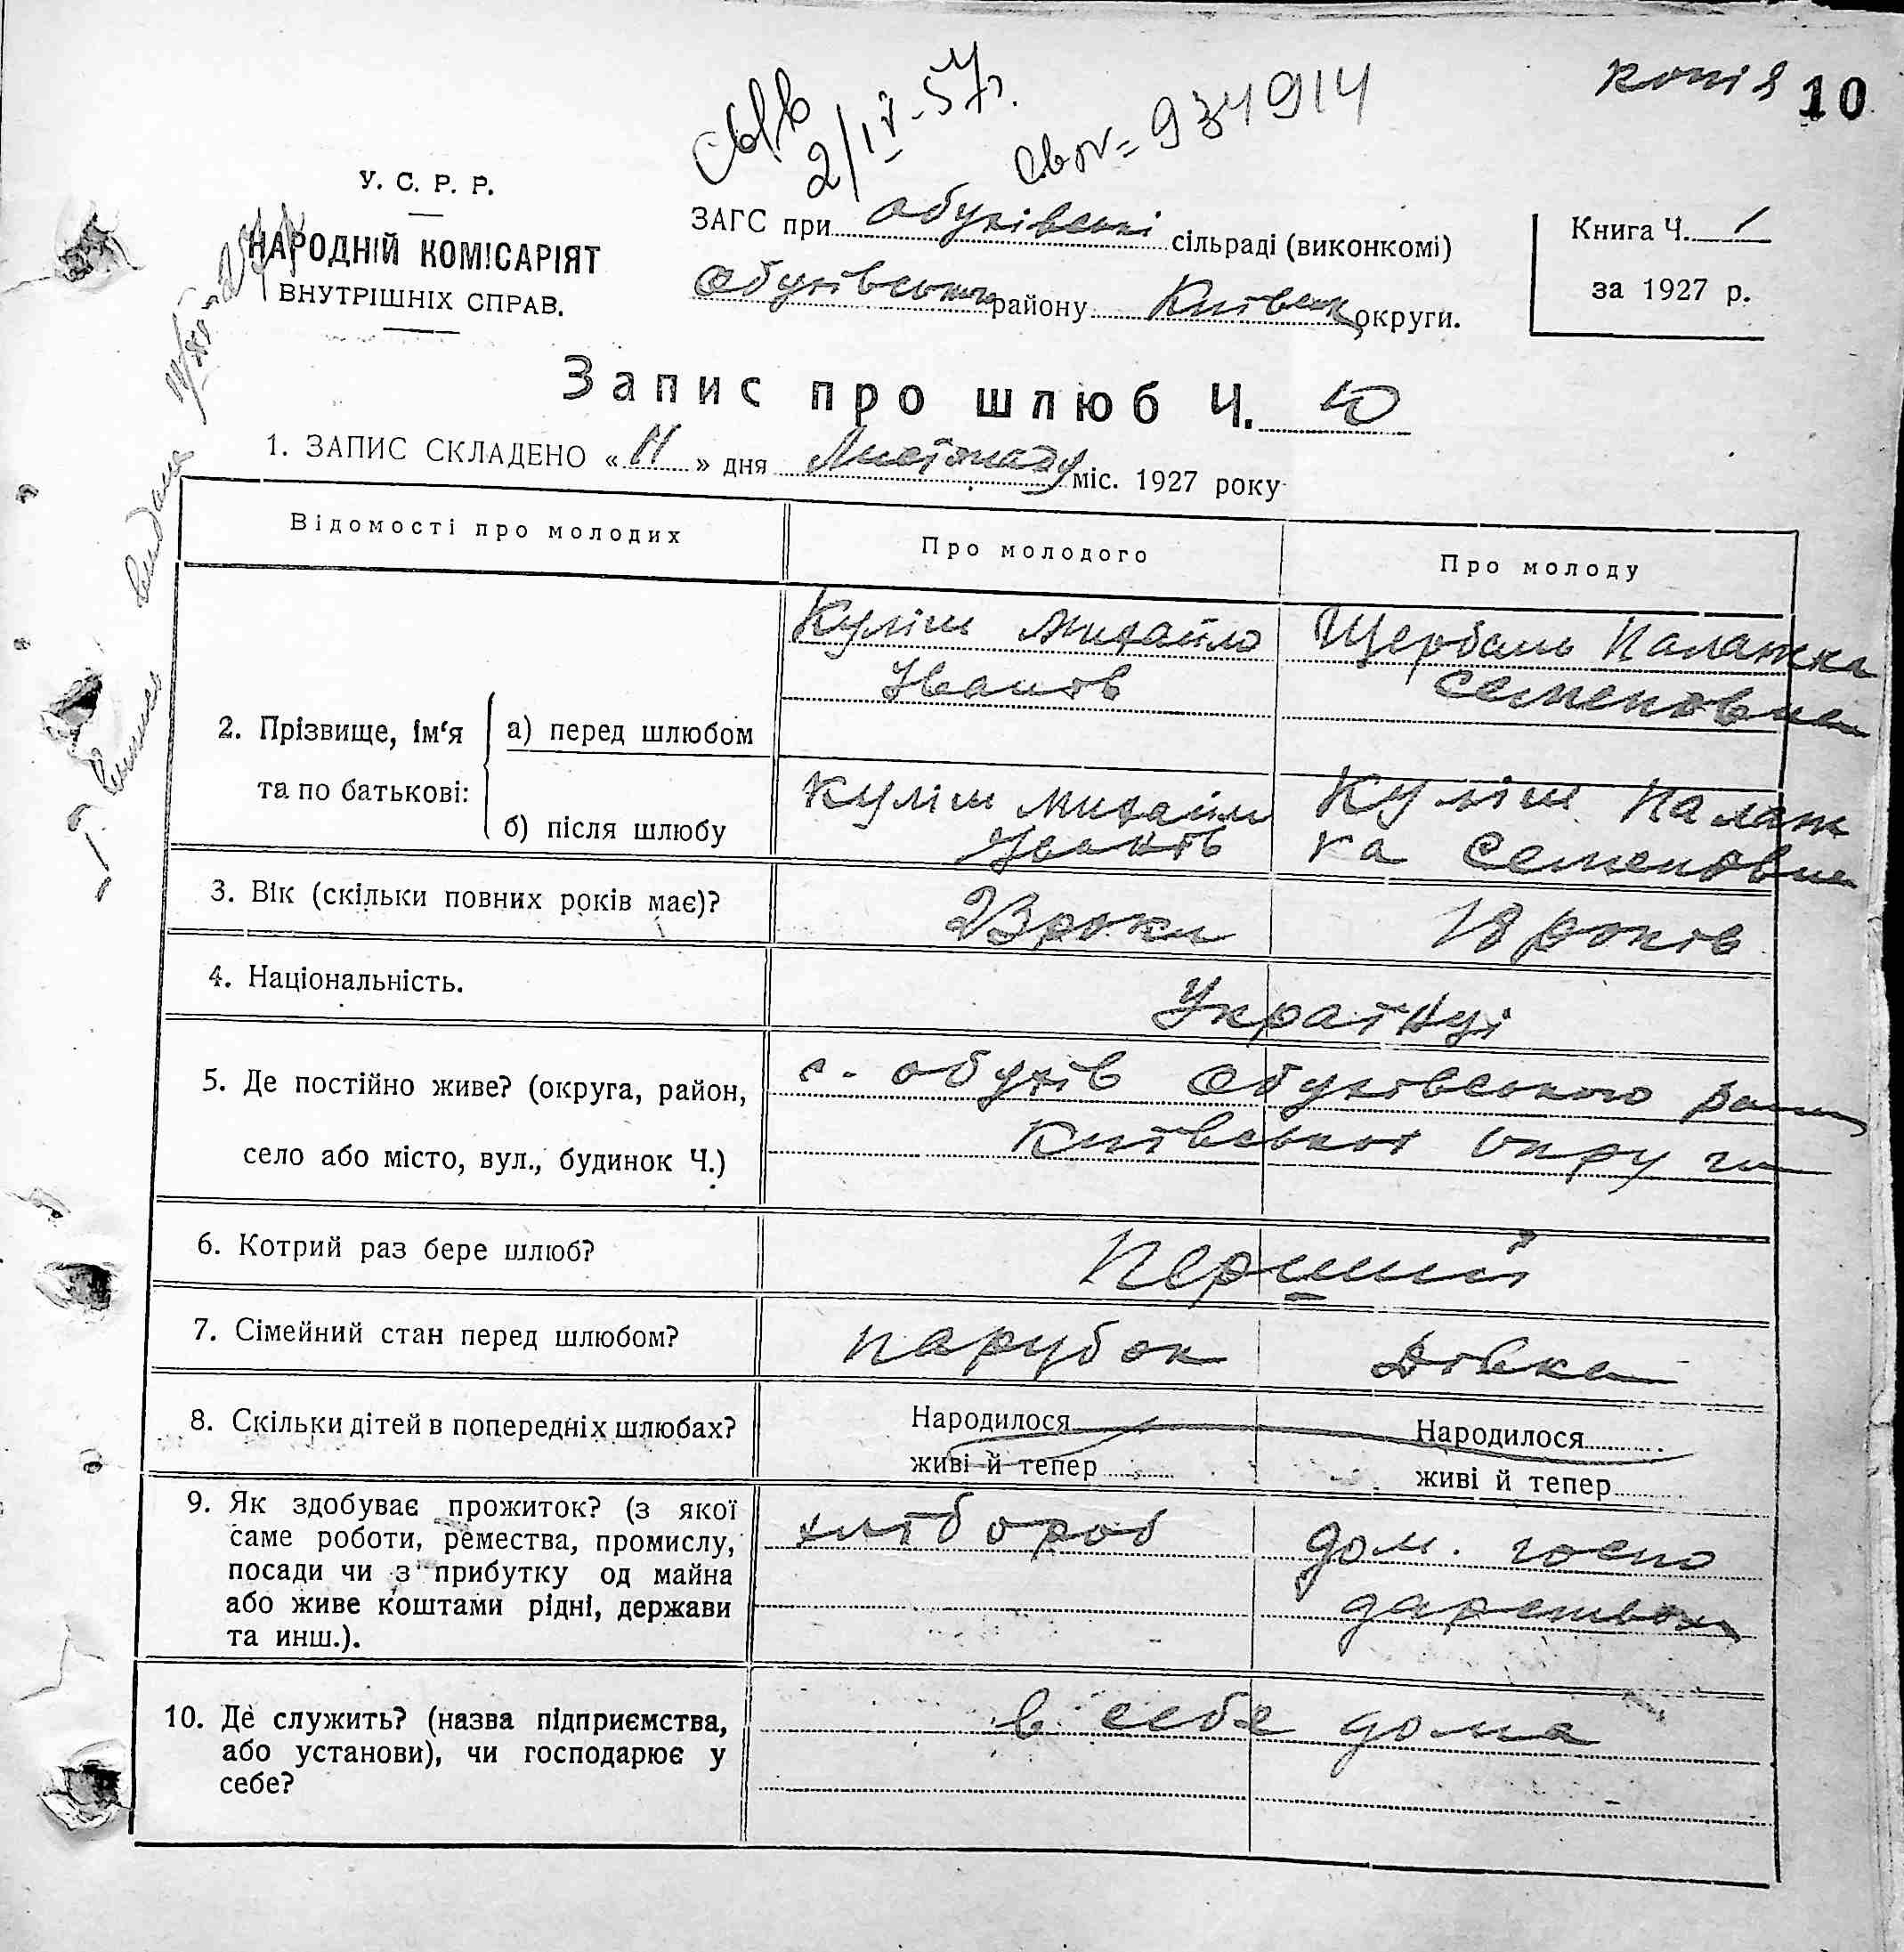 копія 10
2/IV-57г.
Св № 934914
У. С. Р. Р.
НАРОДНІЙ КОМІСАРІЯТ
ВНУТРІШНІХ СПРАВ.
ЗАГС при Обухівські сільраді (виконкомі)
Обухівського району Київськ округи.
Книга Ч. 1
за 1927 р.
Запис про шлюб Ч. 10
1. ЗАПИС СКЛАДЕНО « 11 » дня Листопаду міс. 1927 року
Відомості про молодих
Про молодого
Про молоду
2. Прізвище, ім‘я
та по батькові:
а) перед шлюбом
Куліш Михайло
Іванов
Щербань Палажка
Семеновна
б) після шлюбу
Куліш Михайло
Іванов
Куліш Палаж
ка Семеновна
3. Вік (скільки повних років має)?
23 роки
18 років
4. Національність.
Українці
5. Де постійно живе? (округа, район,
село або місто, вул., будинок Ч.)
с. Обухів Обухівського рай
Київської округи
6. Котрий раз бере шлюб?
Перший
7. Сімейний стан перед шлюбом?
парубок
Дівка
8. Скільки дітей в попередніх шлюбах?
Народилося
живі й тепер
Народилося
живі й тепер
9. Як здобуває прожиток? (з якої
саме роботи, ремества, промислу,
посади чи з прибутку од майна
або живе коштами рідні, держави
та инш.).
хлібороб
дом. госпо
дарством
10. Де служить? (назва підприємства,
або установи), чи господарює у
себе?
в себе дома